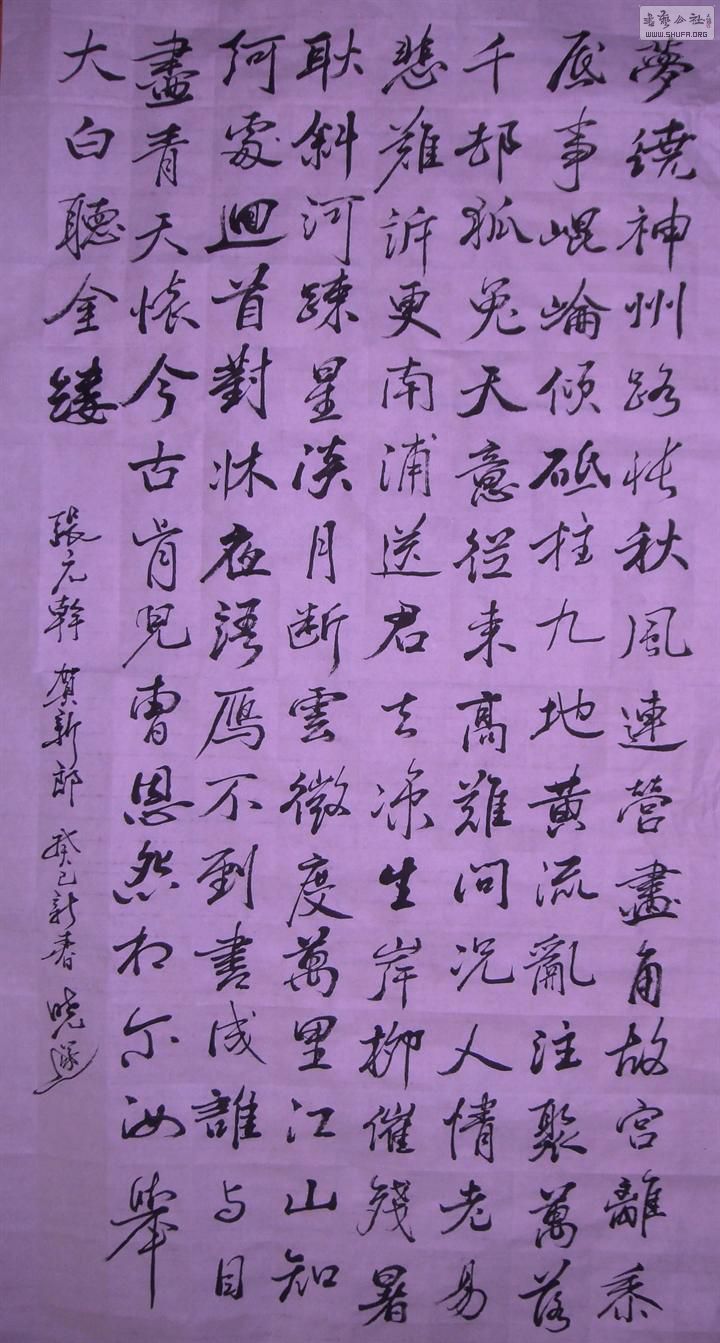 夢繞神州路悵秋風連營畫角故宮離黍
底事崐崘傾砥柱九地黃流亂注聚萬落
千邨狐兔天意從来高難問况人情老易
悲難訴更南浦送君去凉生岸柳催殘暑
耿斜河疎星淡月断雲微度萬里江山知
何處迴首對牀夜語雁不到書成誰与目
盡青天懷今古肯兒曹恩怨相尔汝舉
大白聽金縷
張元幹 賀新郎 癸巳新春 晓
書藝公社
WWW.SHUFA.ORG